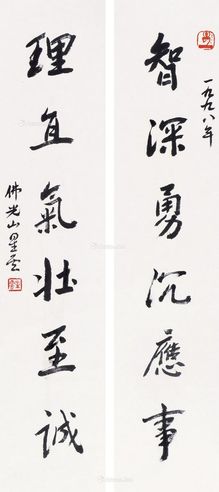 一九九八年
智深勇沉應事
理直氣壯至誠
佛光山星雲